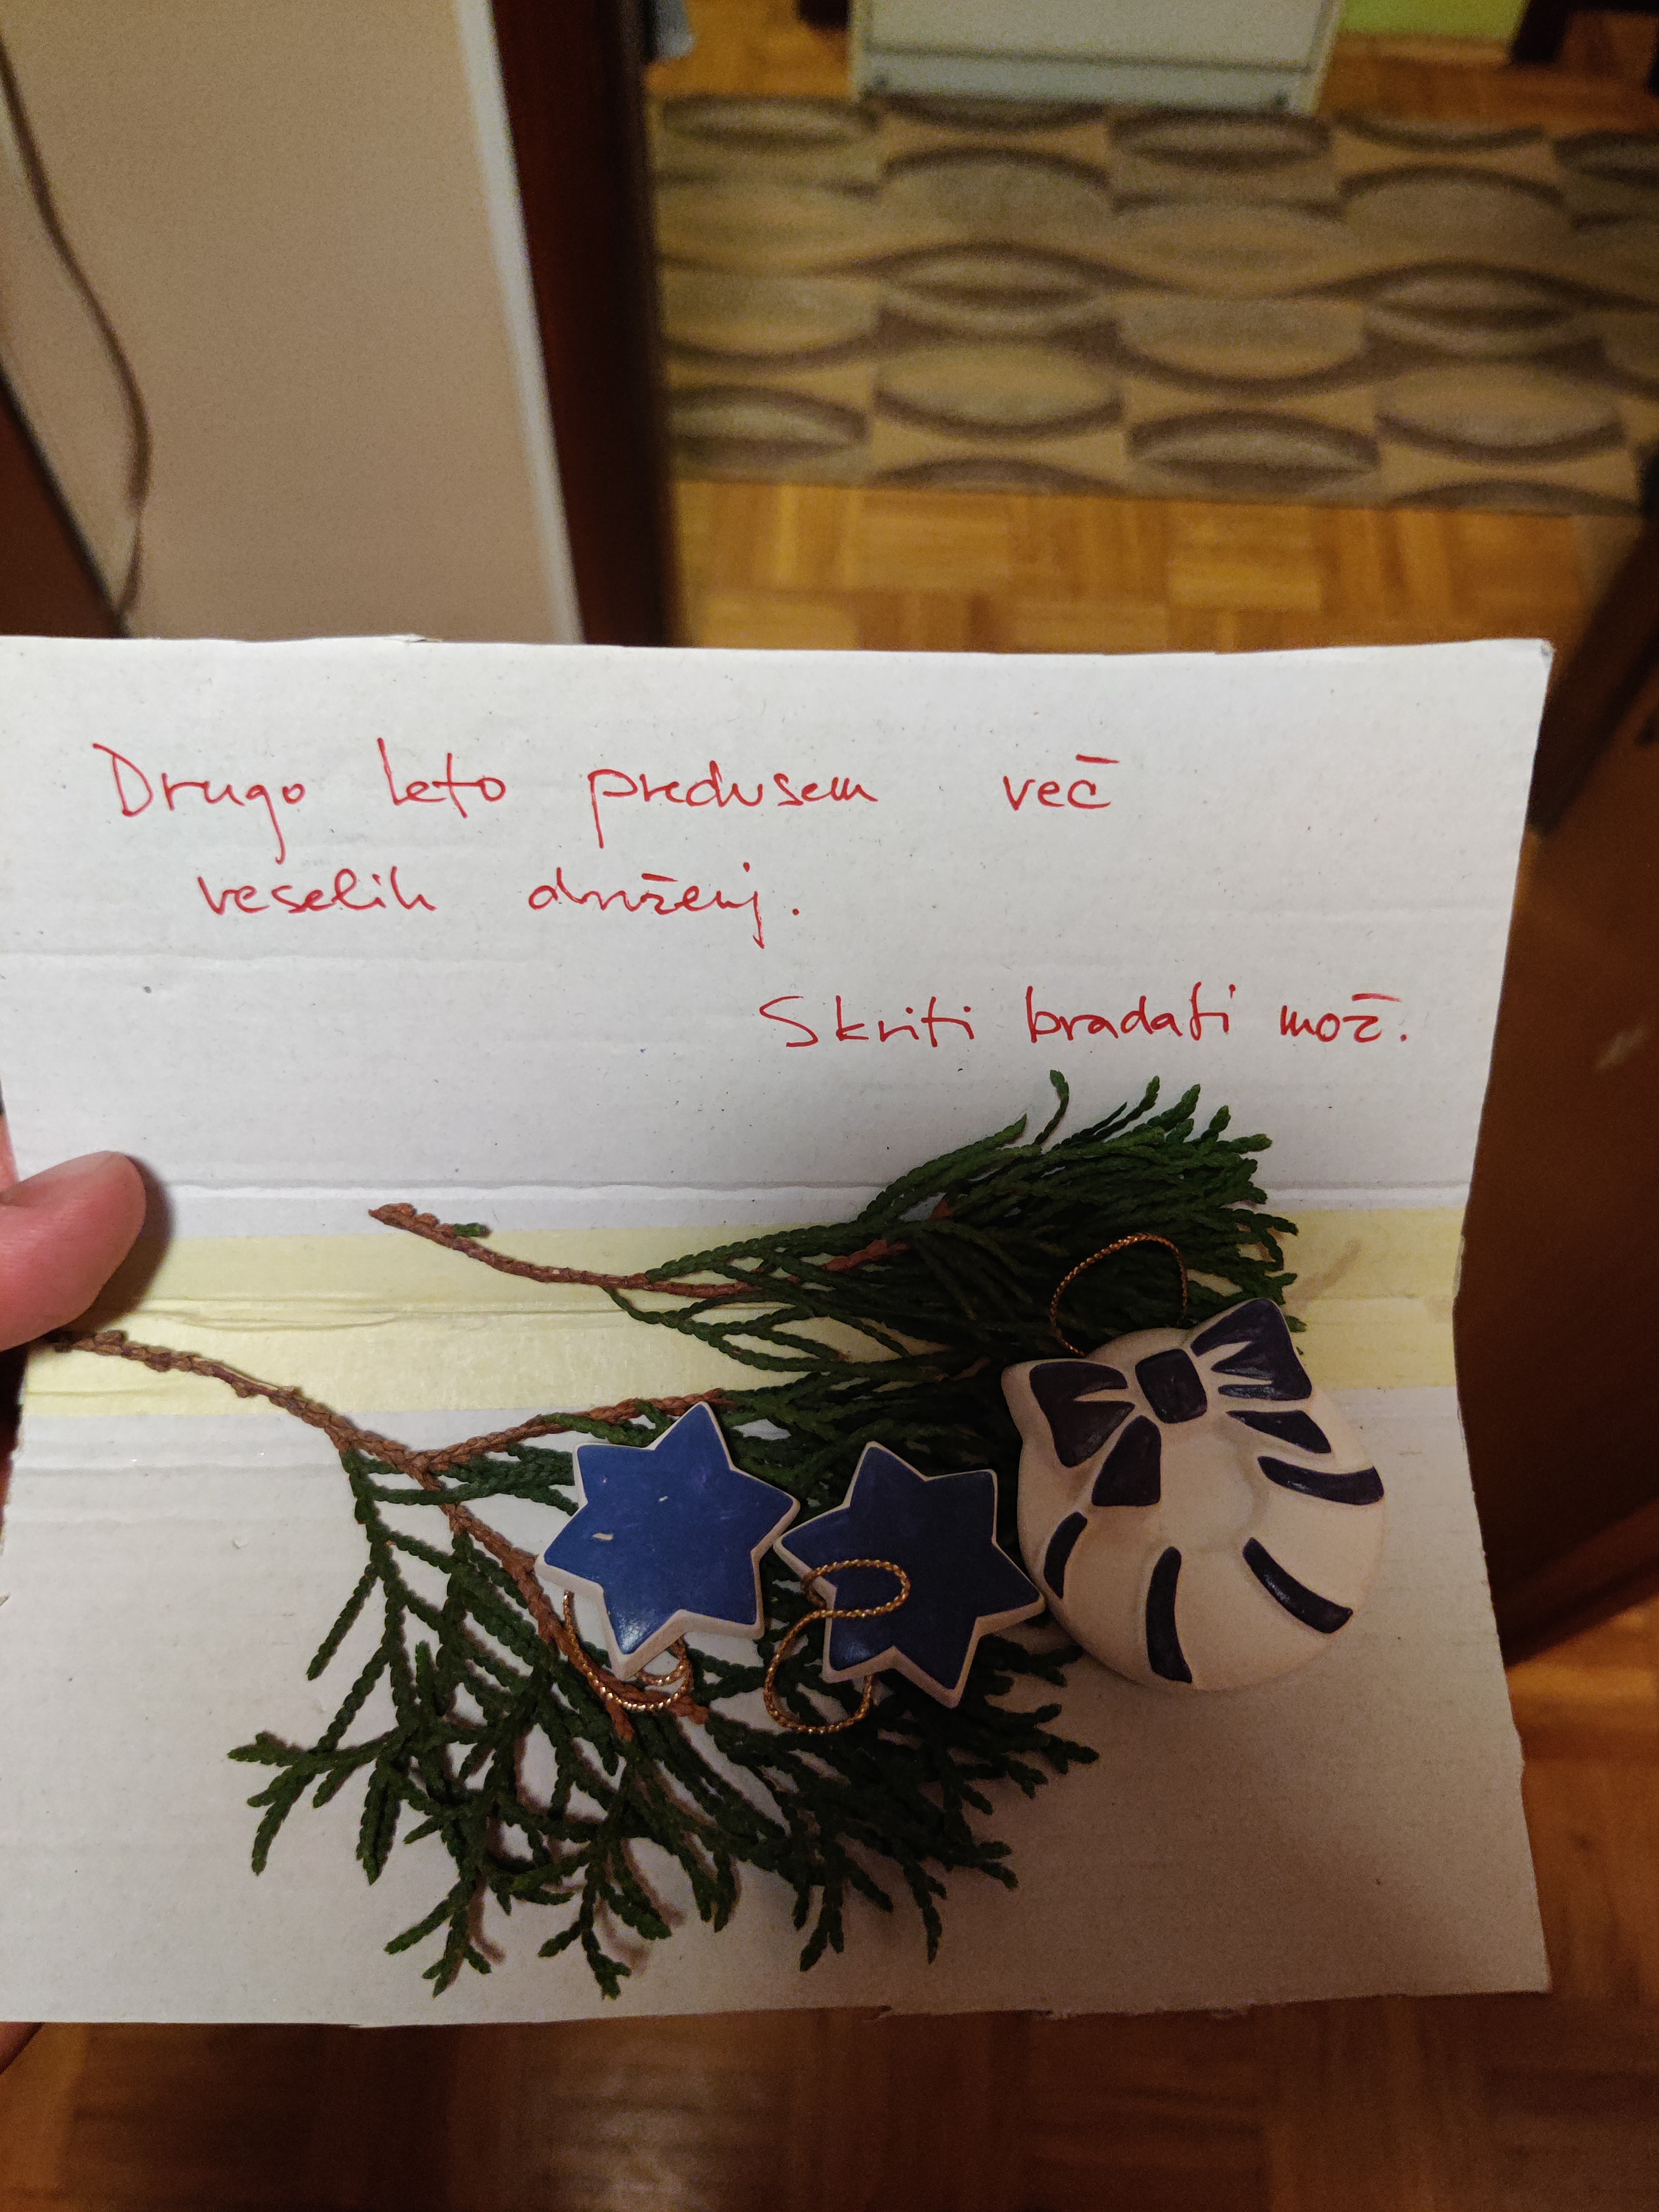 Drugo leto predvsem več
veselih druženj.
Skriti bradati mož.